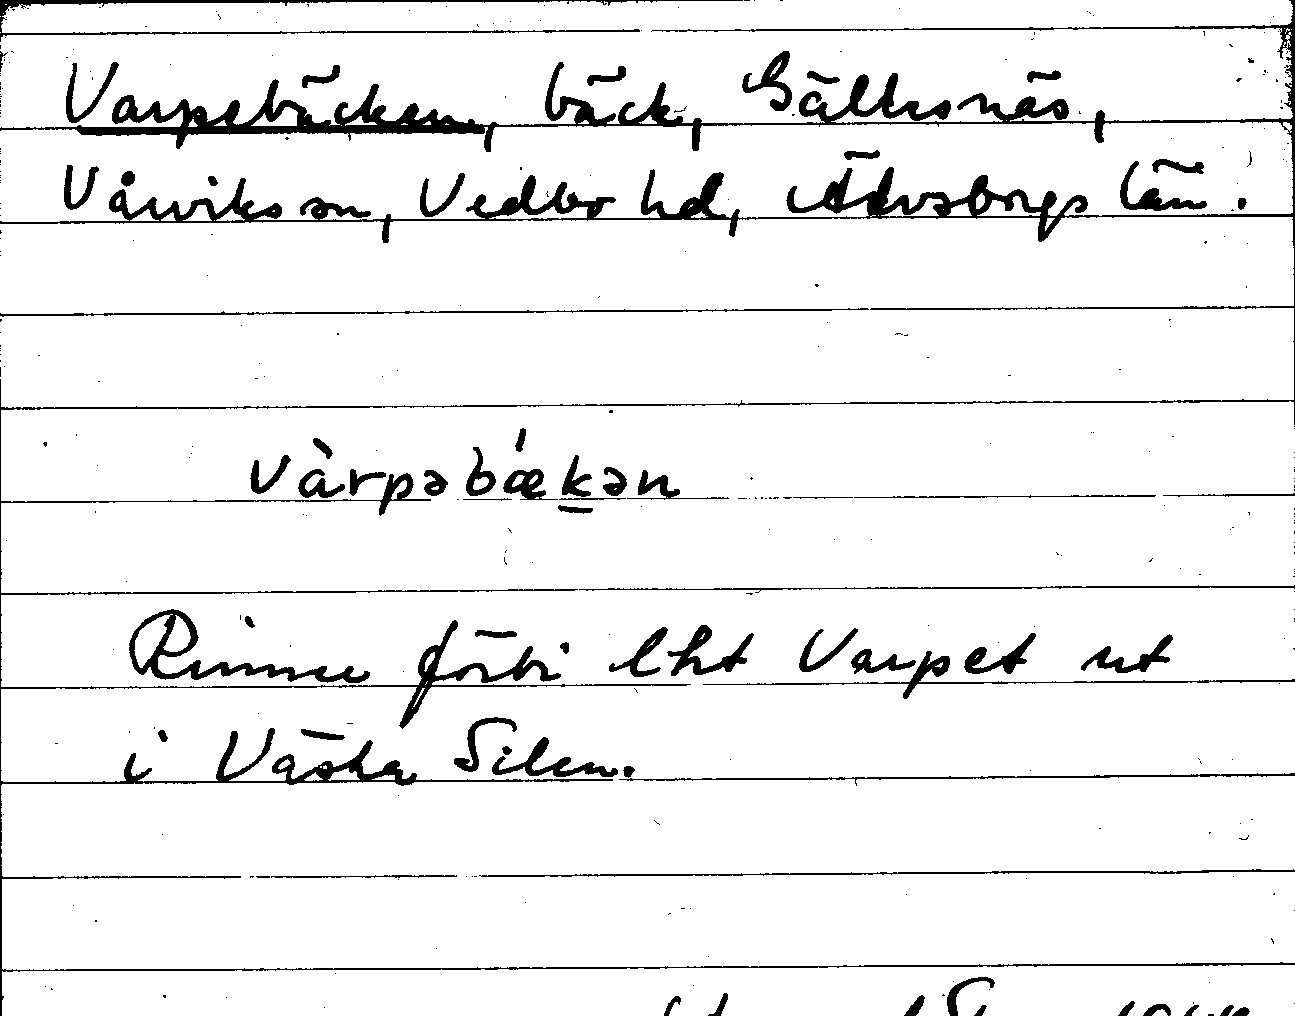 Varpebäcken, bäck, Gälsnäs,
Vårviks sn, Vedbo hd, Älvsborgs län.
vàrpəbǽk̲ən
Rinner förbi lht Varpet ut
i Västra Silen.